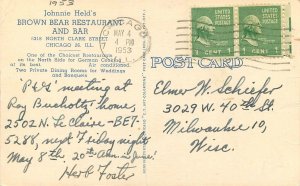 1953
Johnnie Held's
BROWN BEAR RESTAURANT
AND BAR
1318 NORTH CLARK STREET
CHICAGO 26, ILL.
One of the Choicest Restaurants
on the North Side for German Cooking
at its best. Air conditioned.
Two Private Dining Rooms for Weddings
and Banquets.
CHICAGO
MAY 4
4 PM
1953
UNITED STATES POSTAGE
1 CENT 1
UNITED STATES POSTAGE
1 CENT 1
POST CARD
P&G meeting at
Roy Bucholtz home,
2502 N. Le Claire - BE7-
5288, next Friday night
May 8th. 20th Ann in June!
Herb Foster
Elmer W. Schiefer
3029 W. 40th St.
Milwaukee 10,
Wisc.